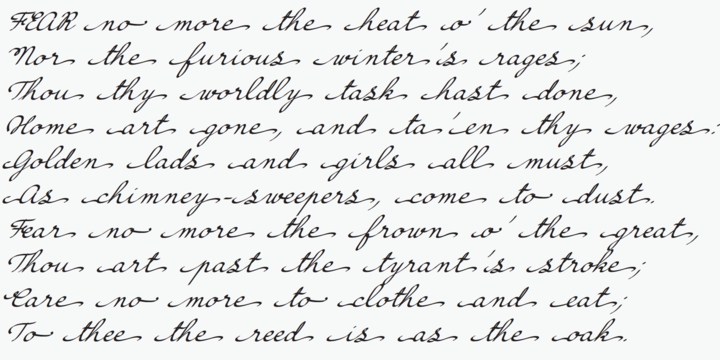 FEAR no more the heat o' the sun,
Nor the furious winter's rages;
Thou thy worldly task hast done,
Home art gone, and ta'en thy wages:
Golden lads and girls all must,
As chimney-sweepers, come to dust.
Fear no more the frown o' the great,
Thou art past the tyrant's stroke;
Care no more to clothe and eat;
To thee the reed is as the oak.